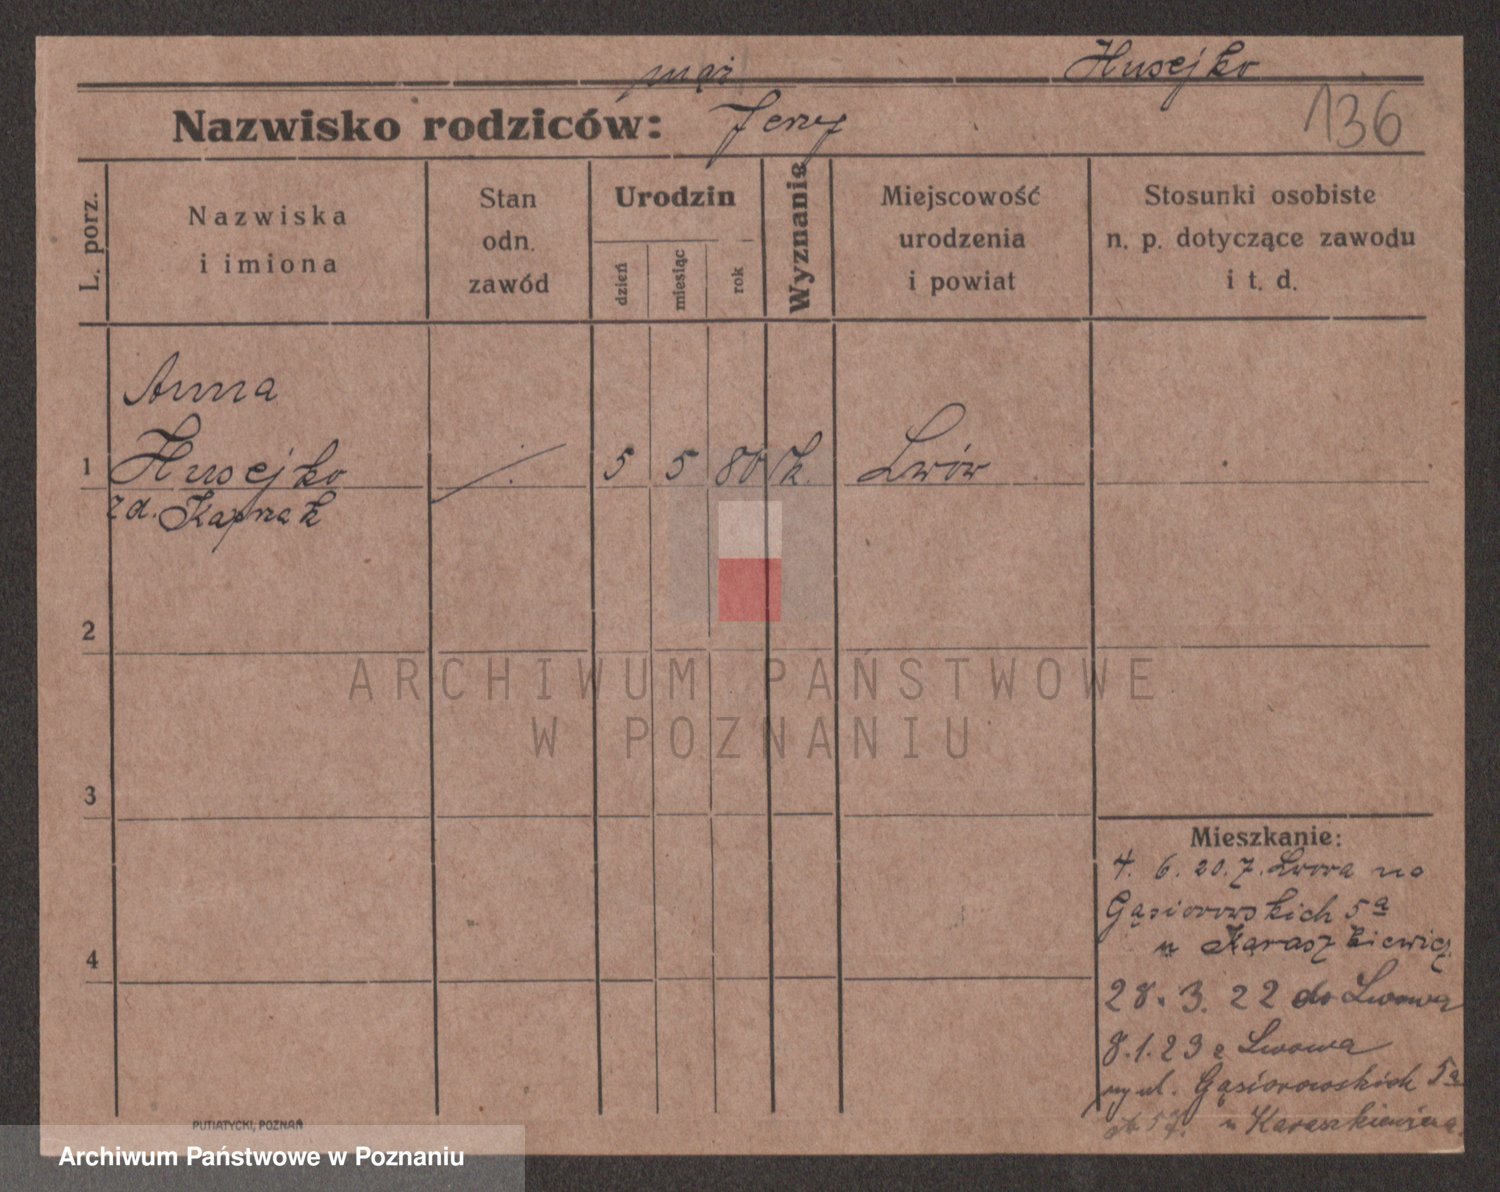 mąż Husejko
Nazwisko rodziców: Jerzy 136
L. porz.
Nazwiska
i imiona
Stan
odn.
zawód
Urodzin
dzień
miesiąc
rok
Wyznanie
Miejscowość
urodzenia
i powiat
Stosunki osobiste
n. p. dotyczące zawodu
i t. d.
Anna
1 Husejko 5 5 80 k. Lwów
zd. Kaprak
2
3
4
Mieszkanie:
4. 6. 20. z. Lwowa na
Gąsiorowskich 5a
u Karaszkiewicz
28. 3. 22 do Lwowa
8.1.23 z Lwowa
ul. Gąsiorowskich 5a
u Karaszkiewicza
PUTIATYCKI, POZNAŃ
ARCHIWUM PAŃSTWOWE
W POZNANIU
Archiwum Państwowe w Poznaniu